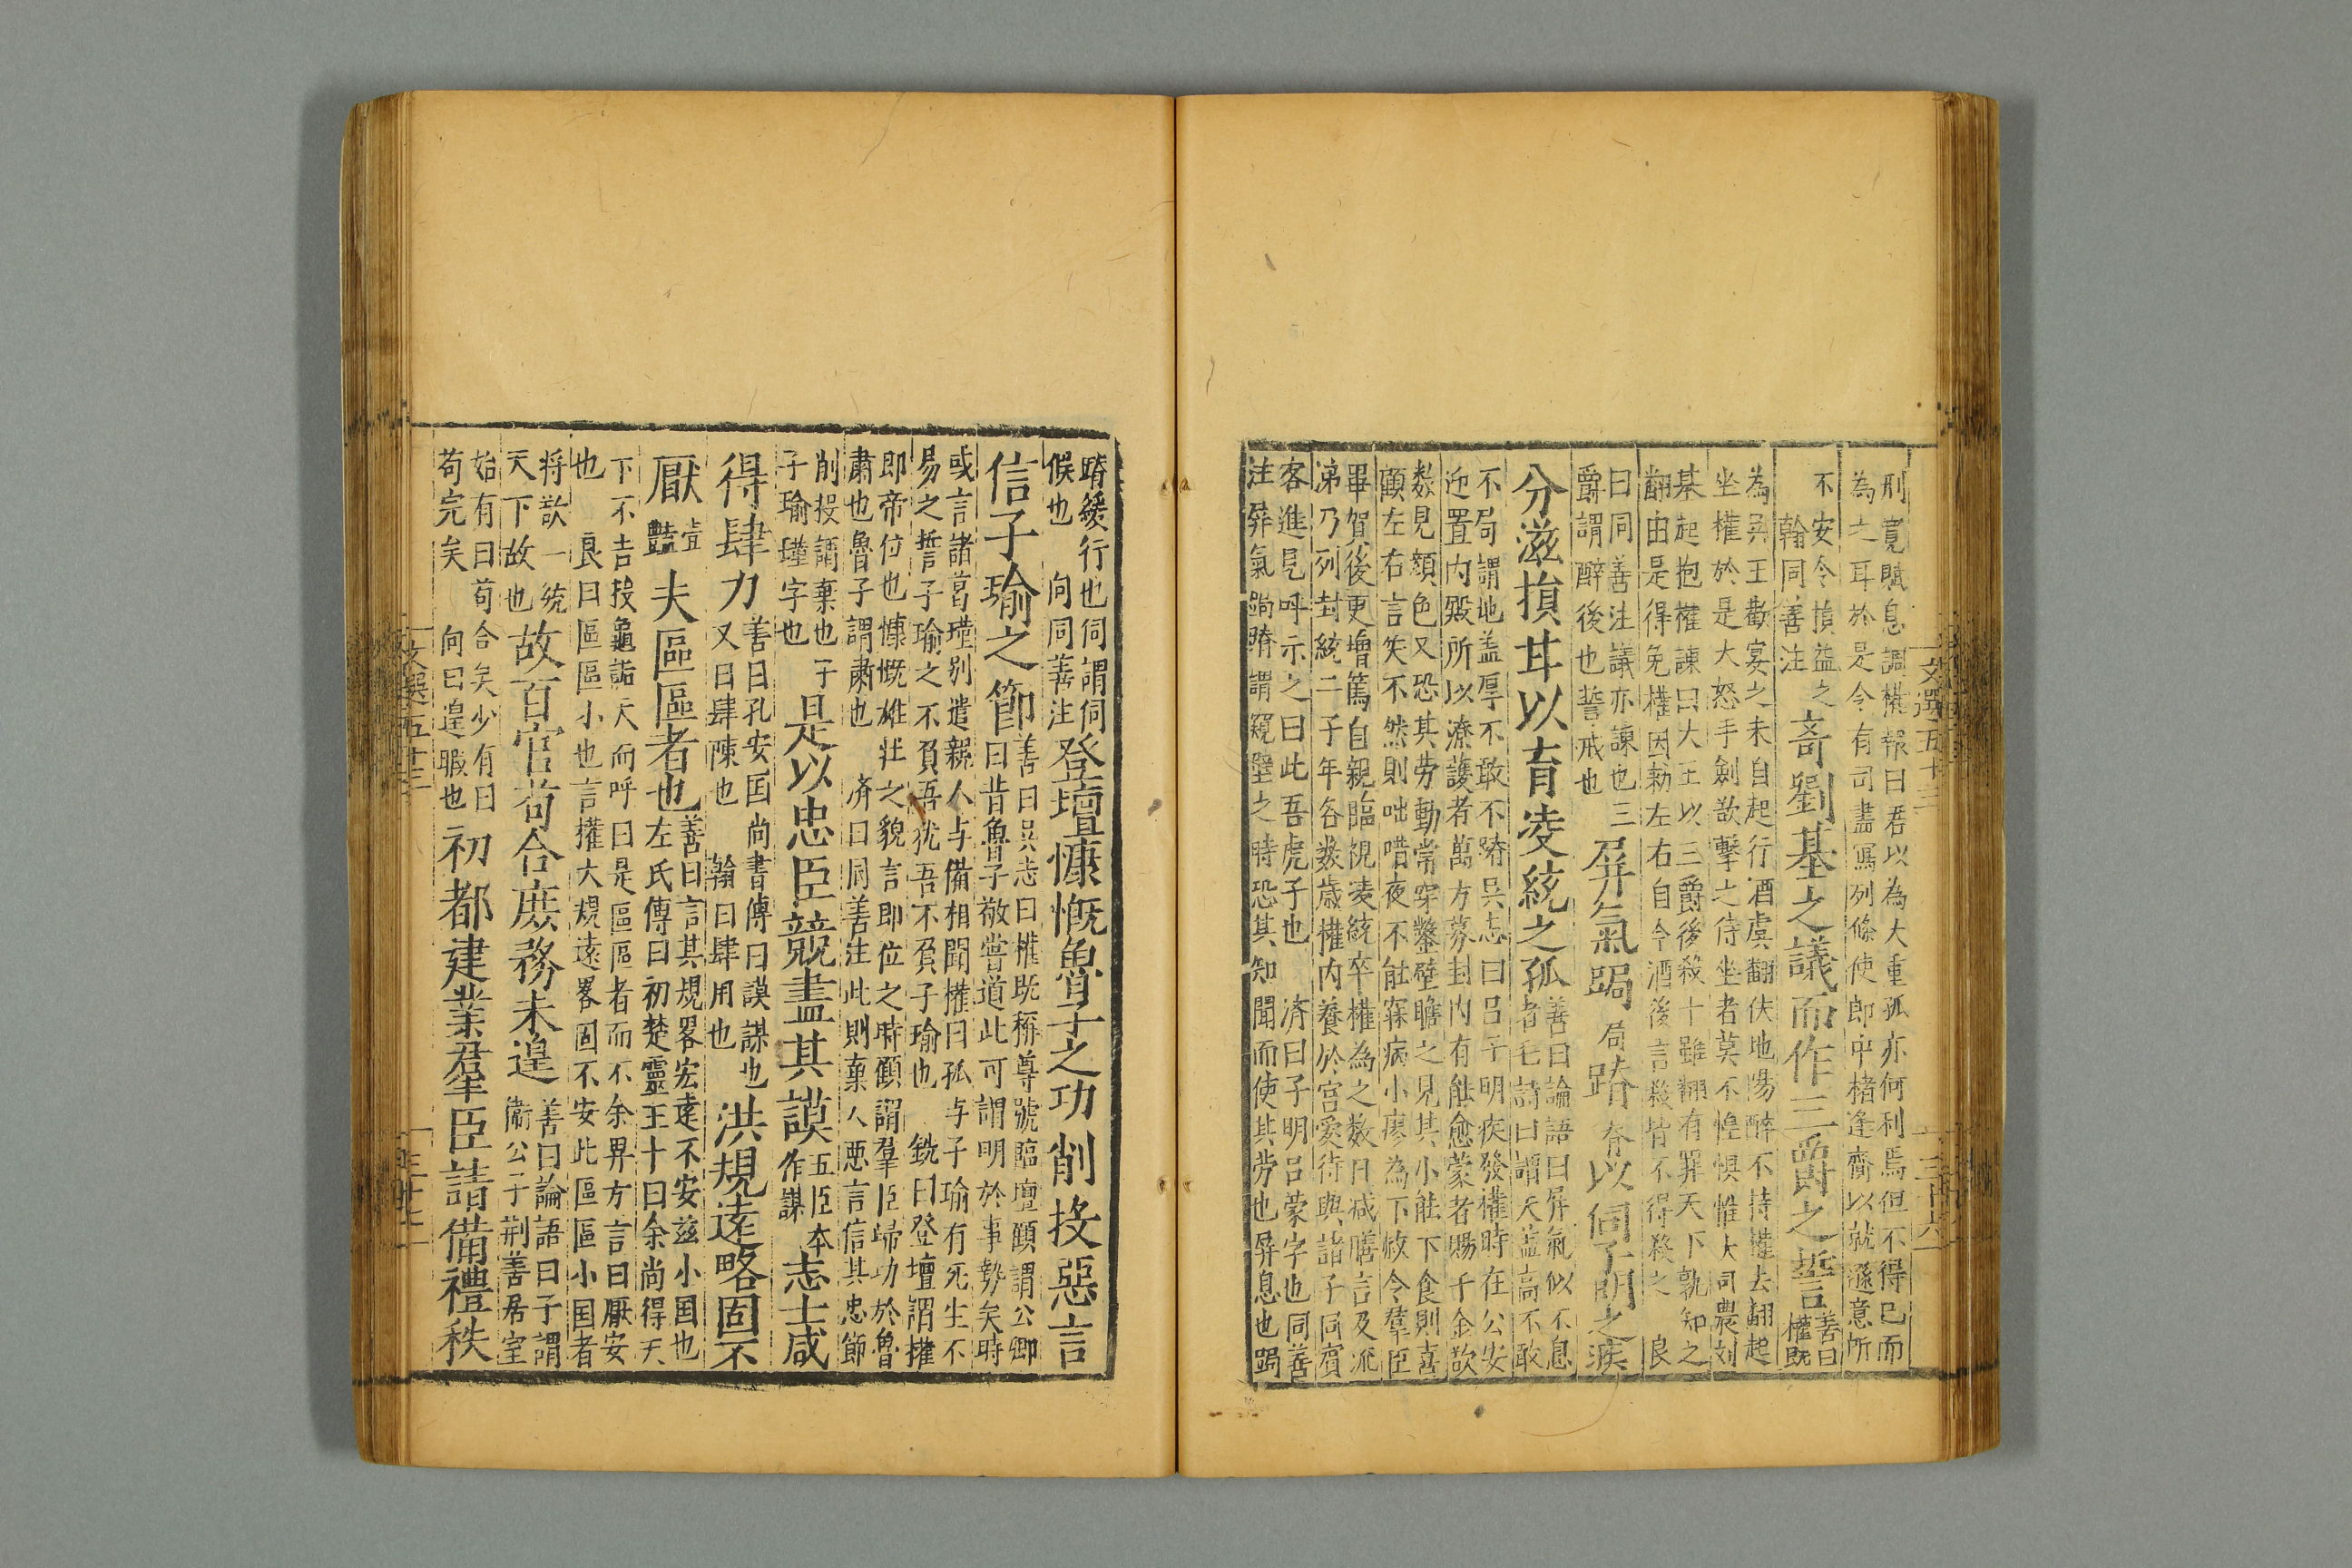 刑寛賦息調權報曰君以為大重孤亦何利焉但不得已而
為之耳於是令有司盡寫列條使郎中褚逢齎以就遜意所
不安令損益之
翰同善注
奇劉基之議而作三爵之誓
善曰
權既
為吳王歡宴之末自起行酒虞翻伏地陽醉不持權去翻起
坐權於是大怒手劍欲擊之侍坐者莫不惶惧惟大司農刘
基起抱權諫曰大王以三爵後殺士雖翻有罪天下孰知之
翻由是得免權因勑左右自今酒後言殺皆不得殺之 良
曰同善注議亦諫也三
爵謂醉後也誓戒也
屏氣跼局蹐脊以伺子明之疾
分滋損甘以育凌統之孤
善曰論語曰屏氣似不息
者毛詩曰謂天盖高不敢
不局謂地盖厚不敢不蹐吳志曰吕子明疾發權時在公安
迎置内殿所以療護者萬方募封内有能愈蒙者賜千金欲
数見顔色又恐其劳動常穿鑿壁瞻之見其小能下食則喜
顧左右言笑不然則咄唶夜不能寐病小瘳為下赦令羣臣
畢賀後更增篤自親臨視凌統卒權為之数日减膳言及流
涕乃列封統二子年各数歳權内養於宫愛待與諸子同賓
客進見呼示之曰此吾虎子也 济曰子明吕蒙字也同善
注屏氣跼蹐謂窺壁之時恐其知聞而使其劳也屏息也跼
蹐緩行也伺謂伺
候也 向同善注
登壇慷慨魯子之功削投惡言
信子瑜之節
善曰吳志曰權既稱尊號臨壇顧謂公卿
曰昔魯子敬嘗道此可謂明於事勢矣時
或言諸葛瑾别遣親人与備相聞權曰孤与子瑜有死生不
易之誓子瑜之不負吾犹吾不負子瑜也 銑曰登壇謂權
即帝位也慷慨雄壮之貌言即位之時顧謂羣臣歸功於魯
肅也魯子謂肅也 济曰同善注此則棄人惡言信其忠節
削投謂棄也子
子瑜瑾字也
是以忠臣競盡其謨
五臣本
作謀
志士咸
得肆力
善曰孔安囯尚書傳曰謨謀也
又曰肆陳也 翰曰肆用也
洪規遠略固不
厭
壹
豔
夫區區者也
善曰言其規畧宏逺不安兹小囯也
左氏傳曰初楚靈王卜曰余尚得天
下不吉投龜詬天而呼曰是區區者而不余畀方言曰厭安
也 良曰區區小也言權大規遠畧固不安此區區小囯者
将欲一统
天下故也
故百官苟合庶務未遑
善曰論語曰子謂
衛公子荆善居室
始有曰苟合矣少有曰
苟完矣 向曰遑暇也
初都建業羣臣請備禮秩
文選五十三
三十六